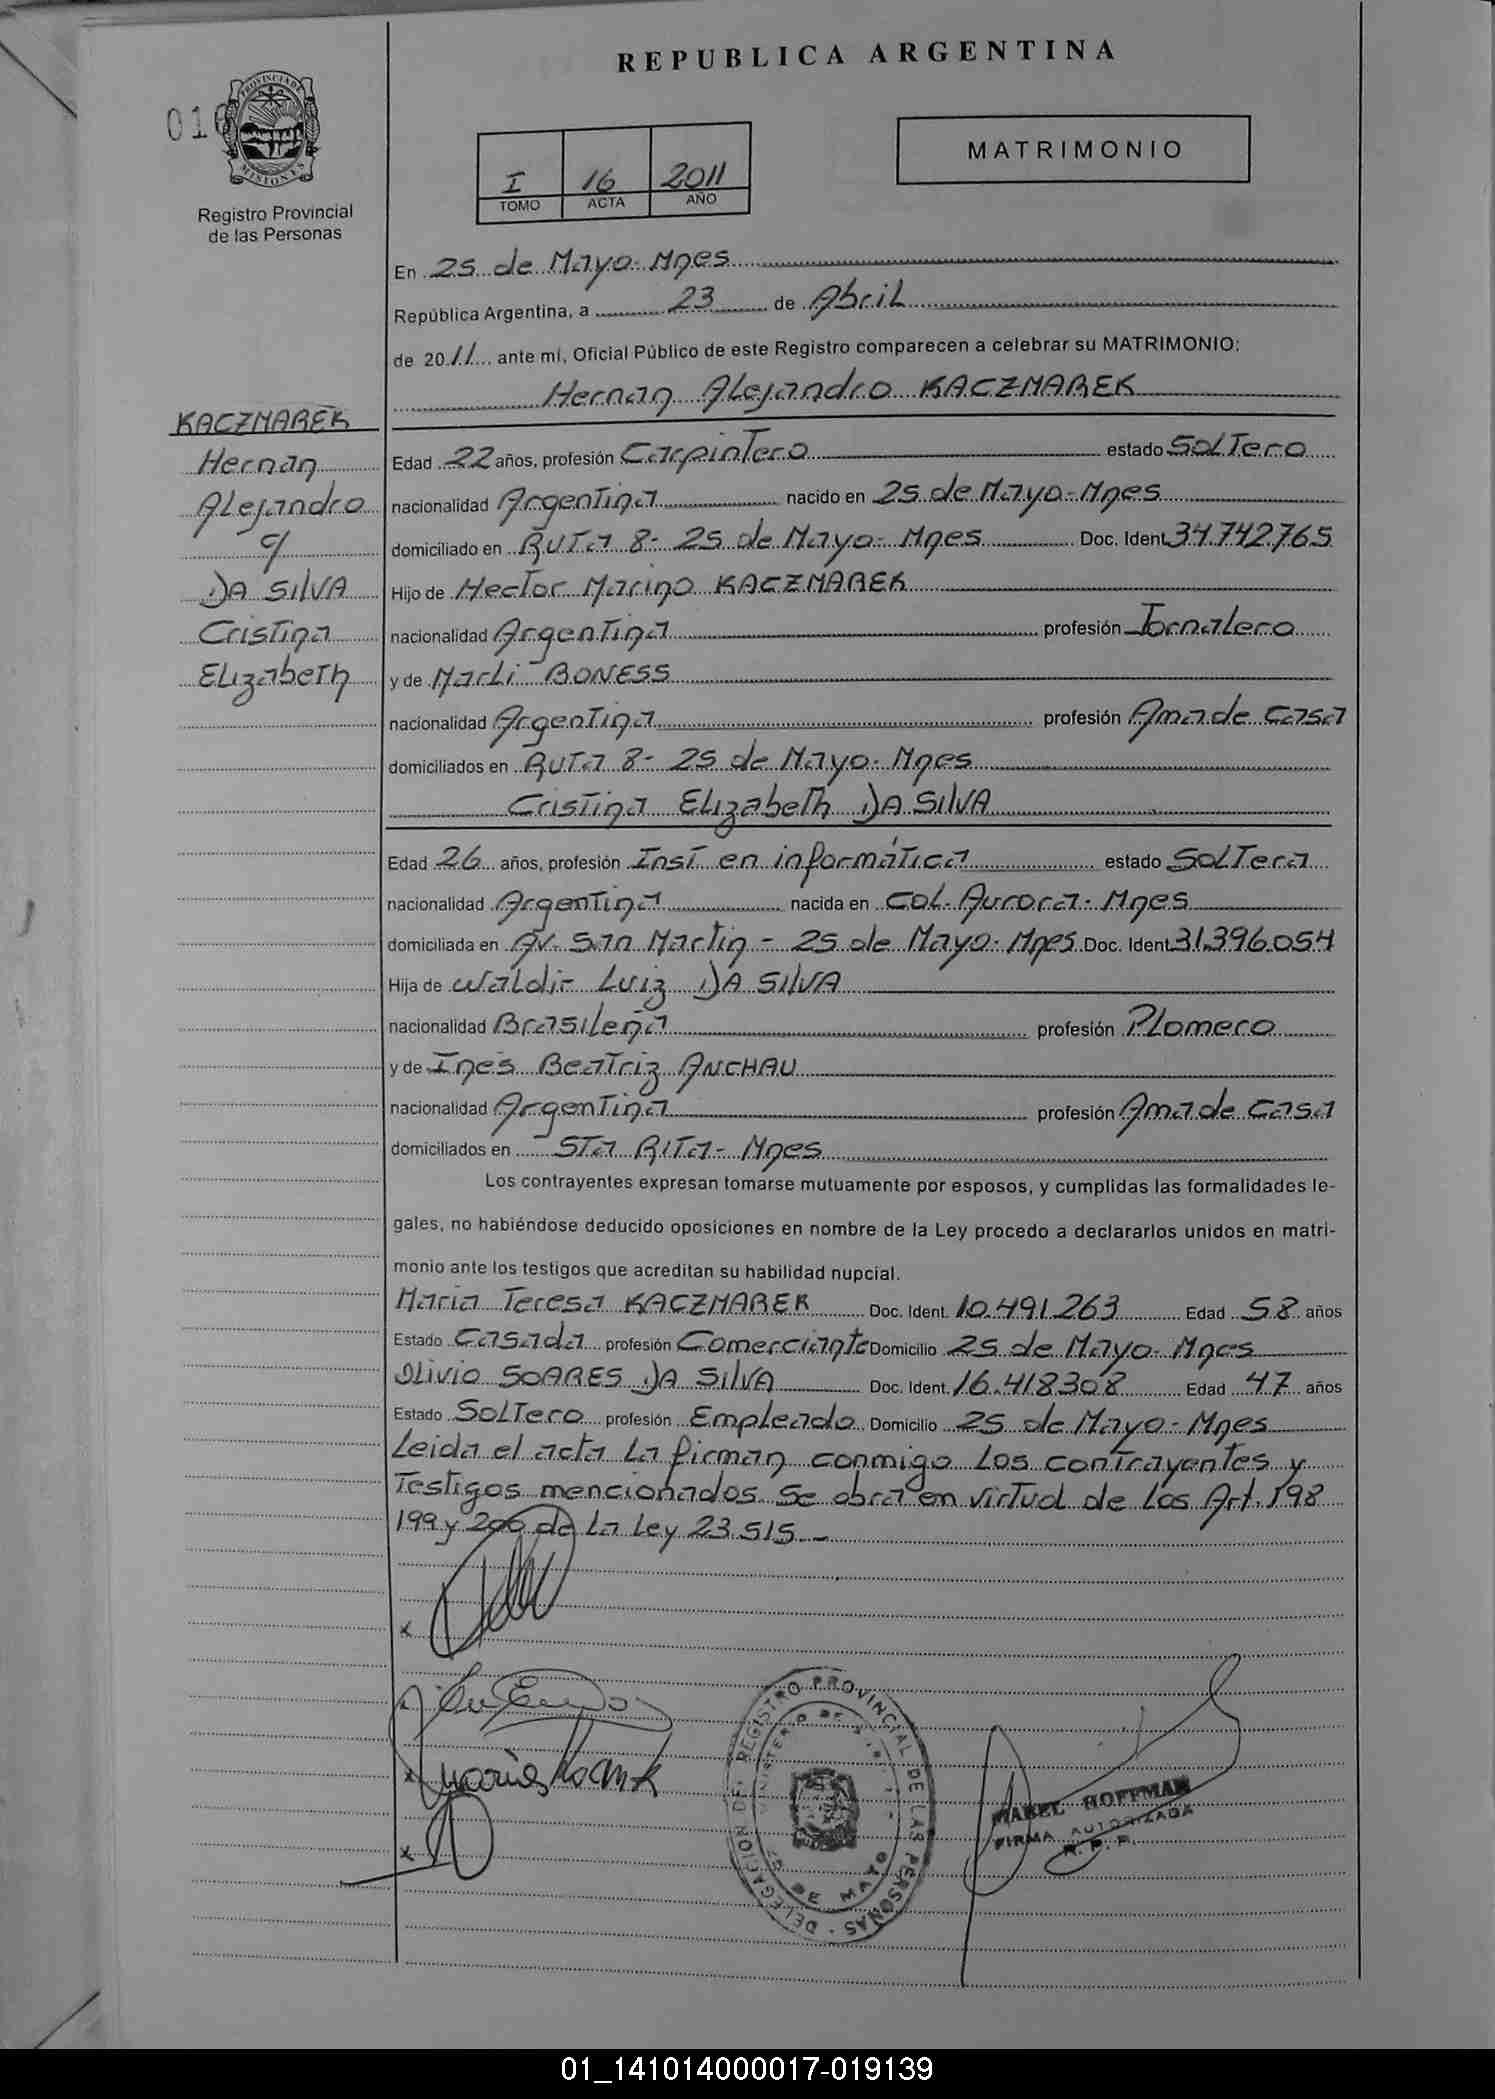 REPUBLICA ARGENTINA
010
PROVINCIA DE
MISIONES
Registro Provincial
de las Personas
I 16 2011
TOMO ACTA AÑO
MATRIMONIO
En 25 de Mayo- Mnes
República Argentina, a 23 de Abril
de 2011 ante mí, Oficial Público de este Registro comparecen a celebrar su MATRIMONIO:
Hernan Alejandro KACZMAREK
KACZMAREK
Hernan
Alejandro
c/
DA SILVA
Cristina
Elizabeth
Edad 22 años, profesión Carpintero estado Soltero
nacionalidad Argentina nacido en 25 de Mayo- Mnes
domiciliado en Ruta 8- 25 de Mayo- Mnes Doc. Ident. 34.742.765
Hijo de Hector Marino KACZMAREK
nacionalidad Argentina profesión Jornalero
y de Marli BONESS
nacionalidad Argentina profesión Ama de casa
domiciliados en Ruta 8- 25 de Mayo- Mnes
Cristina Elizabeth DA SILVA
Edad 26 años, profesión Inst en informática estado Soltera
nacionalidad Argentina nacida en Col. Aurora- Mnes
domiciliada en Av. San Martin - 25 de Mayo- Mnes Doc. Ident. 31.396.054
Hija de Waldir Luiz DA SILVA
nacionalidad Brasileña profesión Plomero
y de Inés Beatriz ANCHAU
nacionalidad Argentina profesión Ama de casa
domiciliados en Sta Rita- Mnes
Los contrayentes expresan tomarse mutuamente por esposos, y cumplidas las formalidades le-
gales, no habiéndose deducido oposiciones en nombre de la Ley procedo a declararlos unidos en matri-
monio ante los testigos que acreditan su habilidad nupcial.
Maria Teresa KACZMAREK Doc. Ident. 10.491.263 Edad 58 años
Estado Casada profesión Comerciante Domicilio 25 de Mayo- Mnes
Olivio SOARES DA SILVA Doc. Ident. 16.418308 Edad 47 años
Estado Soltero profesión Empleado Domicilio 25 de Mayo- Mnes
Leida el acta la firman conmigo los contrayentes y
Testigos mencionados. Se obra en virtud de los Art. 198
199 y 200 de la Ley 23.515.-
x
x
x
DELEGACION DEL REGISTRO PROVINCIAL DE LAS PERSONAS
MINISTERIO DE
25 DE MAYO
MABEL HOFFMAN
FIRMA AUTORIZADA
R. P. P.
01_141014000017-019139